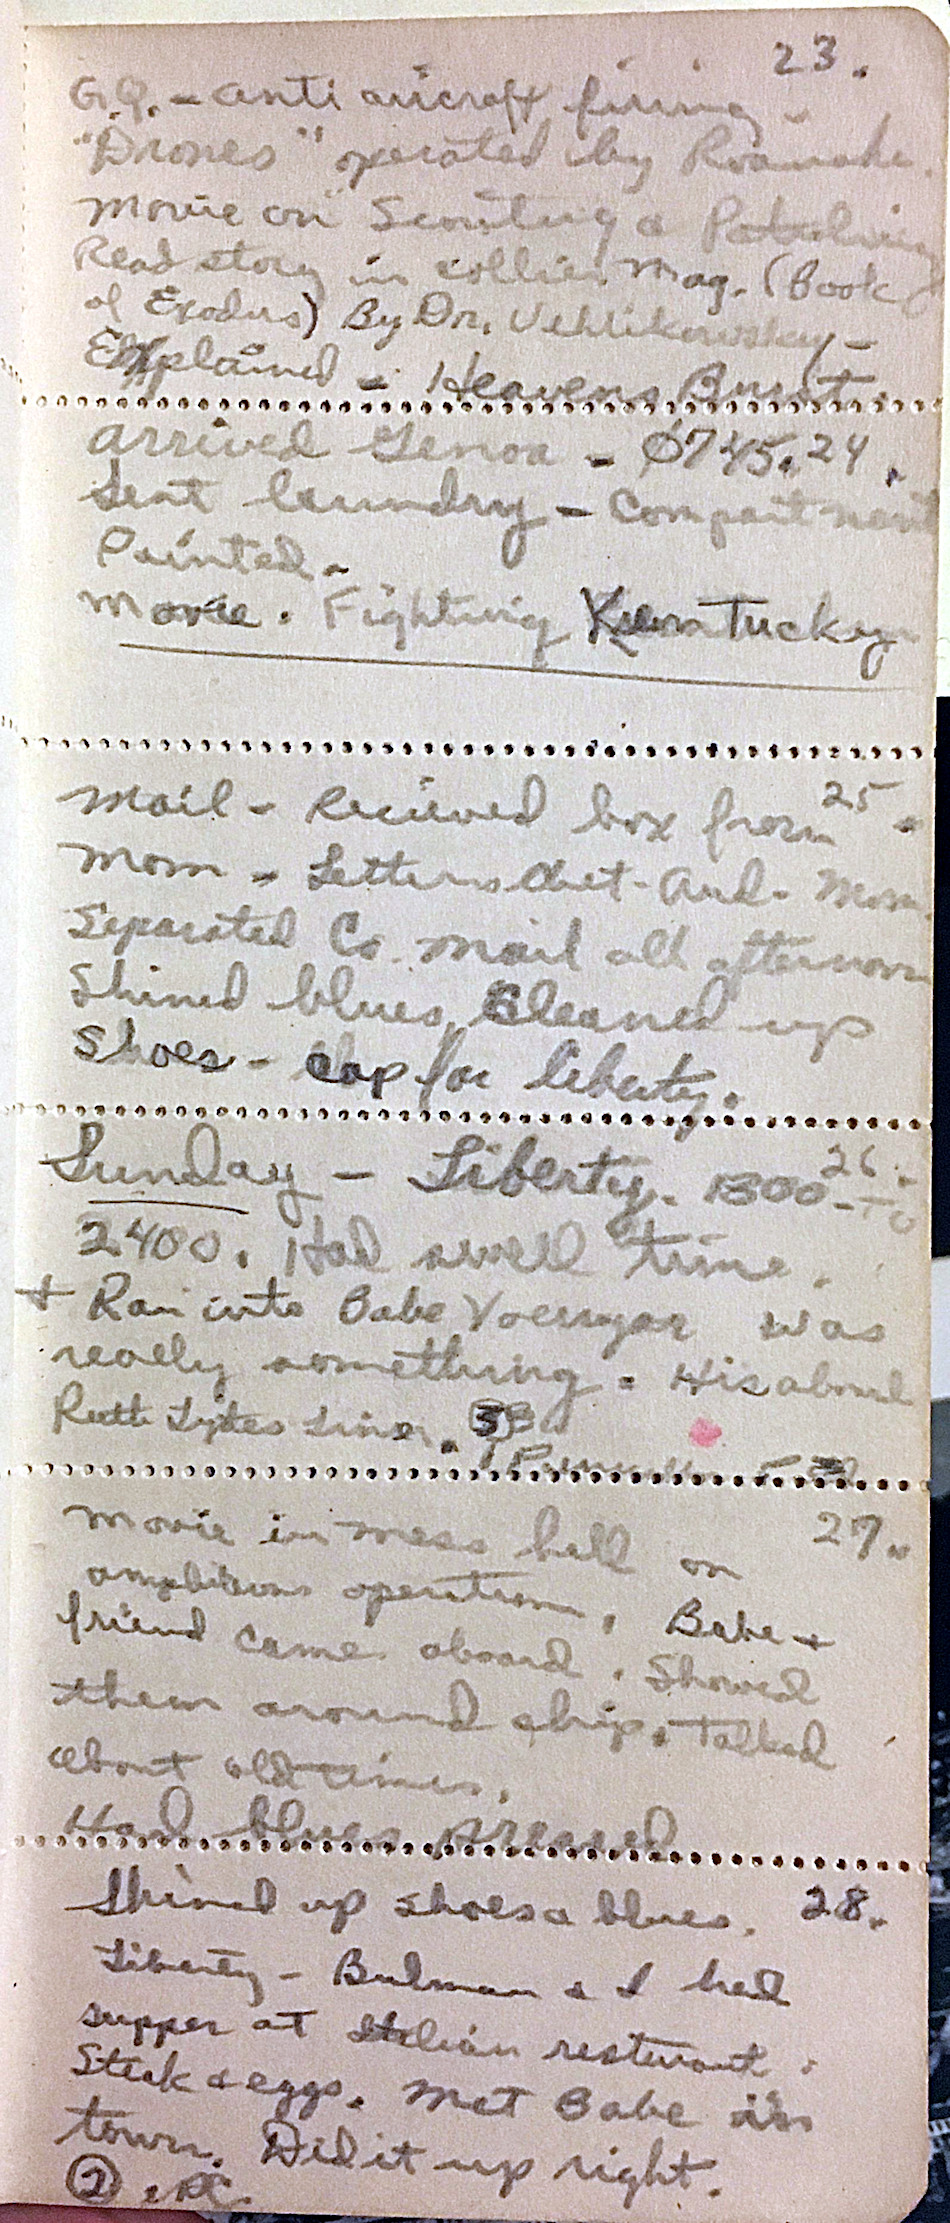 23.
G.Q. - anti aircraft firing -
"Drones" operated by Roanoke.
Movie on Scouting & Patroling
Read story in collier Mag. (Book
of Exodus) By Dr. Vehlikowsky -
Explained - Heavens Burst.
Arrived Genoa - 0745. 24.
Sent laundry - Compartment
Painted -
Movie. Fighting Kentucky
25.
Mail - Recieved box from
Mom - Letters Chet - And - Mom.
Separated Co. Mail all afternoon
Shined blues, Cleaned up
Shoes - cap for liberty.
26.
Sunday - Liberty. 1300 - To
2400. Had swell time.
+ Ran into Babe was
really something. His aboard
Ruth Lykes Liner.
27.
Movie in mess hall on
amphibious operation. Babe +
friend came aboard. Showed
them around ship. Talked
about old times.
Had blues Pressed
Shined up shoes & blues. 28.
Liberty - Bulman & I had
supper at Italian resturant.
Steak & eggs. Met Babe in
town. Did it up right.
②